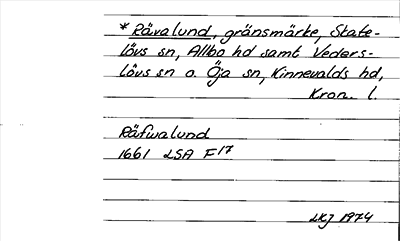 * Rävalund, gränsmärke, Skate-
lövs sn, Allbo hd samt Veders-
lövs sn o. Öja sn, Kinnevalds hd,
Kron. l.
Räfwalund
1661 LSA F17
LKJ 1974